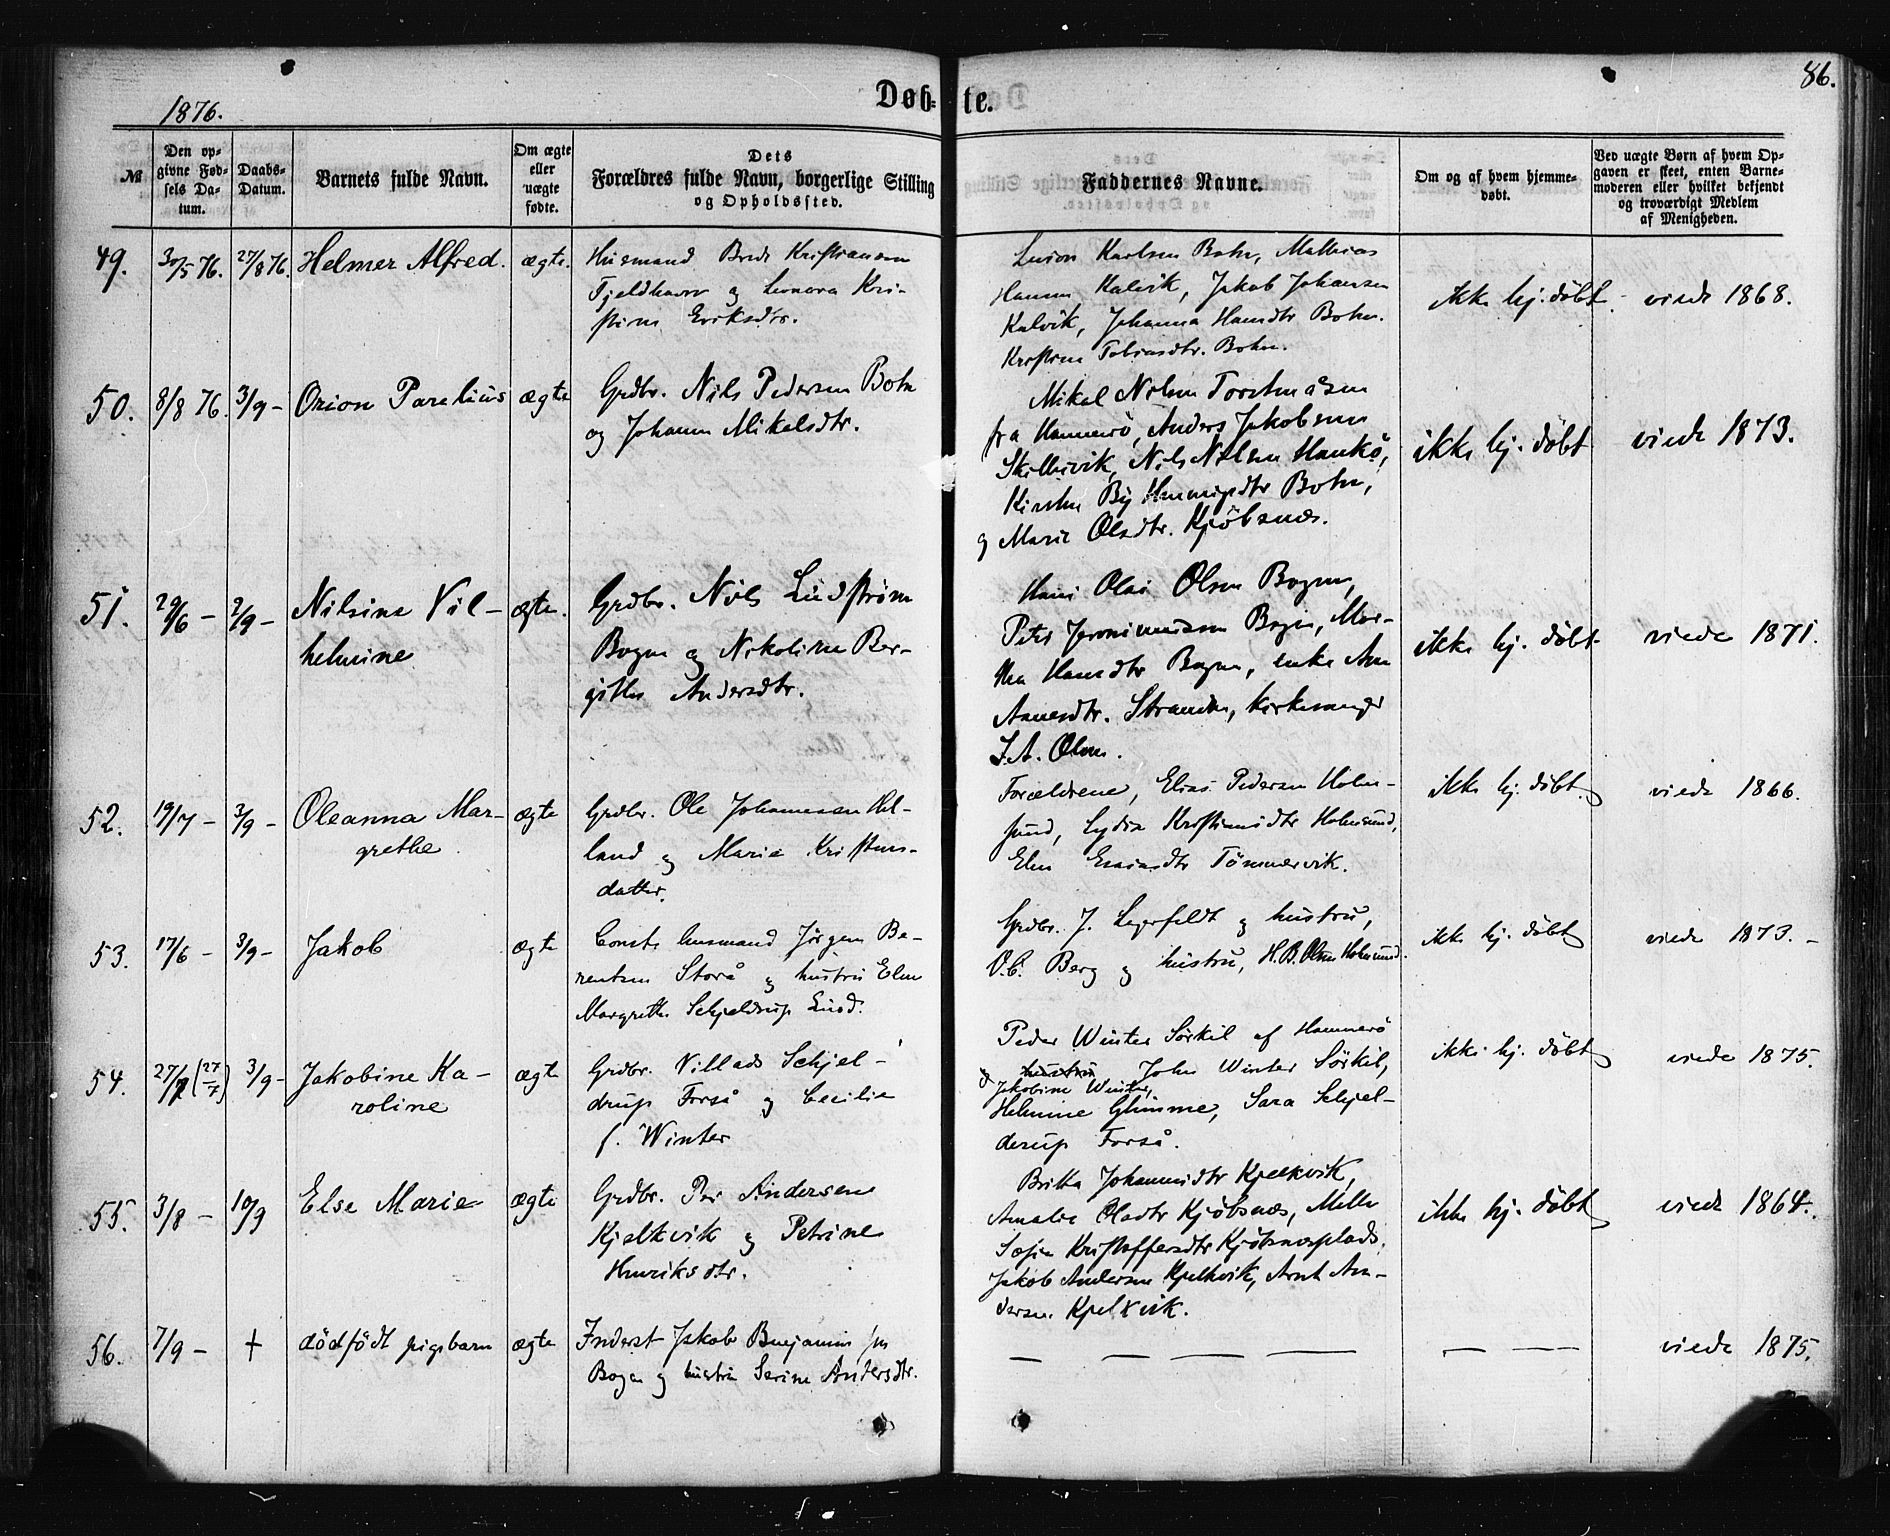 86.
1876.
Døb-te.
№
Den op-
givne Fød-
sels Da-
tum.
Daabs-
Datum.
Barnets fulde Navn.
Om ægte
eller
uægte
fødte.
Dets
Forældres fulde Navn, borgerlige Stilling
og Opholdssted.
Faddernes Navne.
Om og af hvem hjemme-
døbt.
Ved uægte Børn af hvem Op-
gaven er skeet, enten Barne-
moderen eller hvilket bekjendt
og troværdigt Medlem
af Menigheden.
49. 30/5 76. 27/8 76. Helmer Alfred. ægte.
Husmand Kristiansen
og Leonora Kri-
stine Eriksdtr.
Karlsen Botn, Mathias
Hansen Kalvik, Jakob Johansen
Kalvik, Johanna Hansdtr Botn.
Kristine Tobiasdtr. Botn.
ikke hj. døbt. viede 1868.
50. 8/8 76. 3/9 - Orion Parelius ægte
Grdbr. Nils Pedersen Botn
og Johanna Mikalsdtr.
Mikal Nilsen
fra Hammerö, Anders Jakobsen
Skillevik, Nils Nilsen
Kirsten By Botn,
og Marie Olsdtr. Kjöbsnæs.
ikke hj. döbt viede 1873.
51. 29/6 - 2/9 - Nilsine Vil-
helmine
ægte.
Grdbr. Nils Lüdström
Bogen og Nikoline Ber-
githe Andersdtr.
Hans Olai Olsen Bogen,
Peter Jeronimussen Bogen, Mar-
tha Hansdtr Bogen, enke Ane
Strande, kirkesanger
J. A. Olsen.
ikke hj. döbt viede 1871.
52. 19/7 - 3/9 - Oleanna Mar-
grethe
ægte
Grdbr. Ole Johannesen Hel-
land og Maria Kristens-
datter.
Forældrene, Elias Pedersen Holm-
sund, Lydia Holmsund,
Elen Esaiasdtr Tömmervik.
ikke hj. döbt. viede 1866.
53. 17/6 - 3/9 - Jakob ægte
Const. husmand Jörgen Be-
rentsen Storå og hustru Elen
Margrethe Schjeldrup Lund.
Grdbr. J. Legerfeldt og hustru,
O. C. Berg og hustru, H. B. Olsen Holmsund.
ikke hj. döbt viede 1873. -
54. 27/7 (27/7) 3/9 - Jakobine Ka-
roline
ægte
Grdbr. Villads Schjel-
drup Forså og Cecilie
f. Winter
Peder Winter Sörkil af Hammerö
og hustru John Winter Sörkil,
Jakobine Winter,
Glimme, Sara Schjel-
derup Forså.
ikke hj. döbt viede 1875.
55. 3/8 - 10/9 Else Marie ægte
Grdbr. Per Andersen
Kjelkvik og Petrine
Henriksdtr.
Britta Johannesdtr Kjelkvik,
Amalie Olsdtr Kjöbsnæs, Mette
Sofie Kristoffersdtr Kjöbsnæsplads.
Jakob Andersen Kjelkvik, Arnt An-
dersen Kjelkvik.
ikke hj. döbt viede 1864.
56. 7/9 - + dödfödt pigebarn ægte
Inderst Jakob Benjaminsen
Bogen og hustru Serine Andersdtr.
— — — — — —
viede 1875.